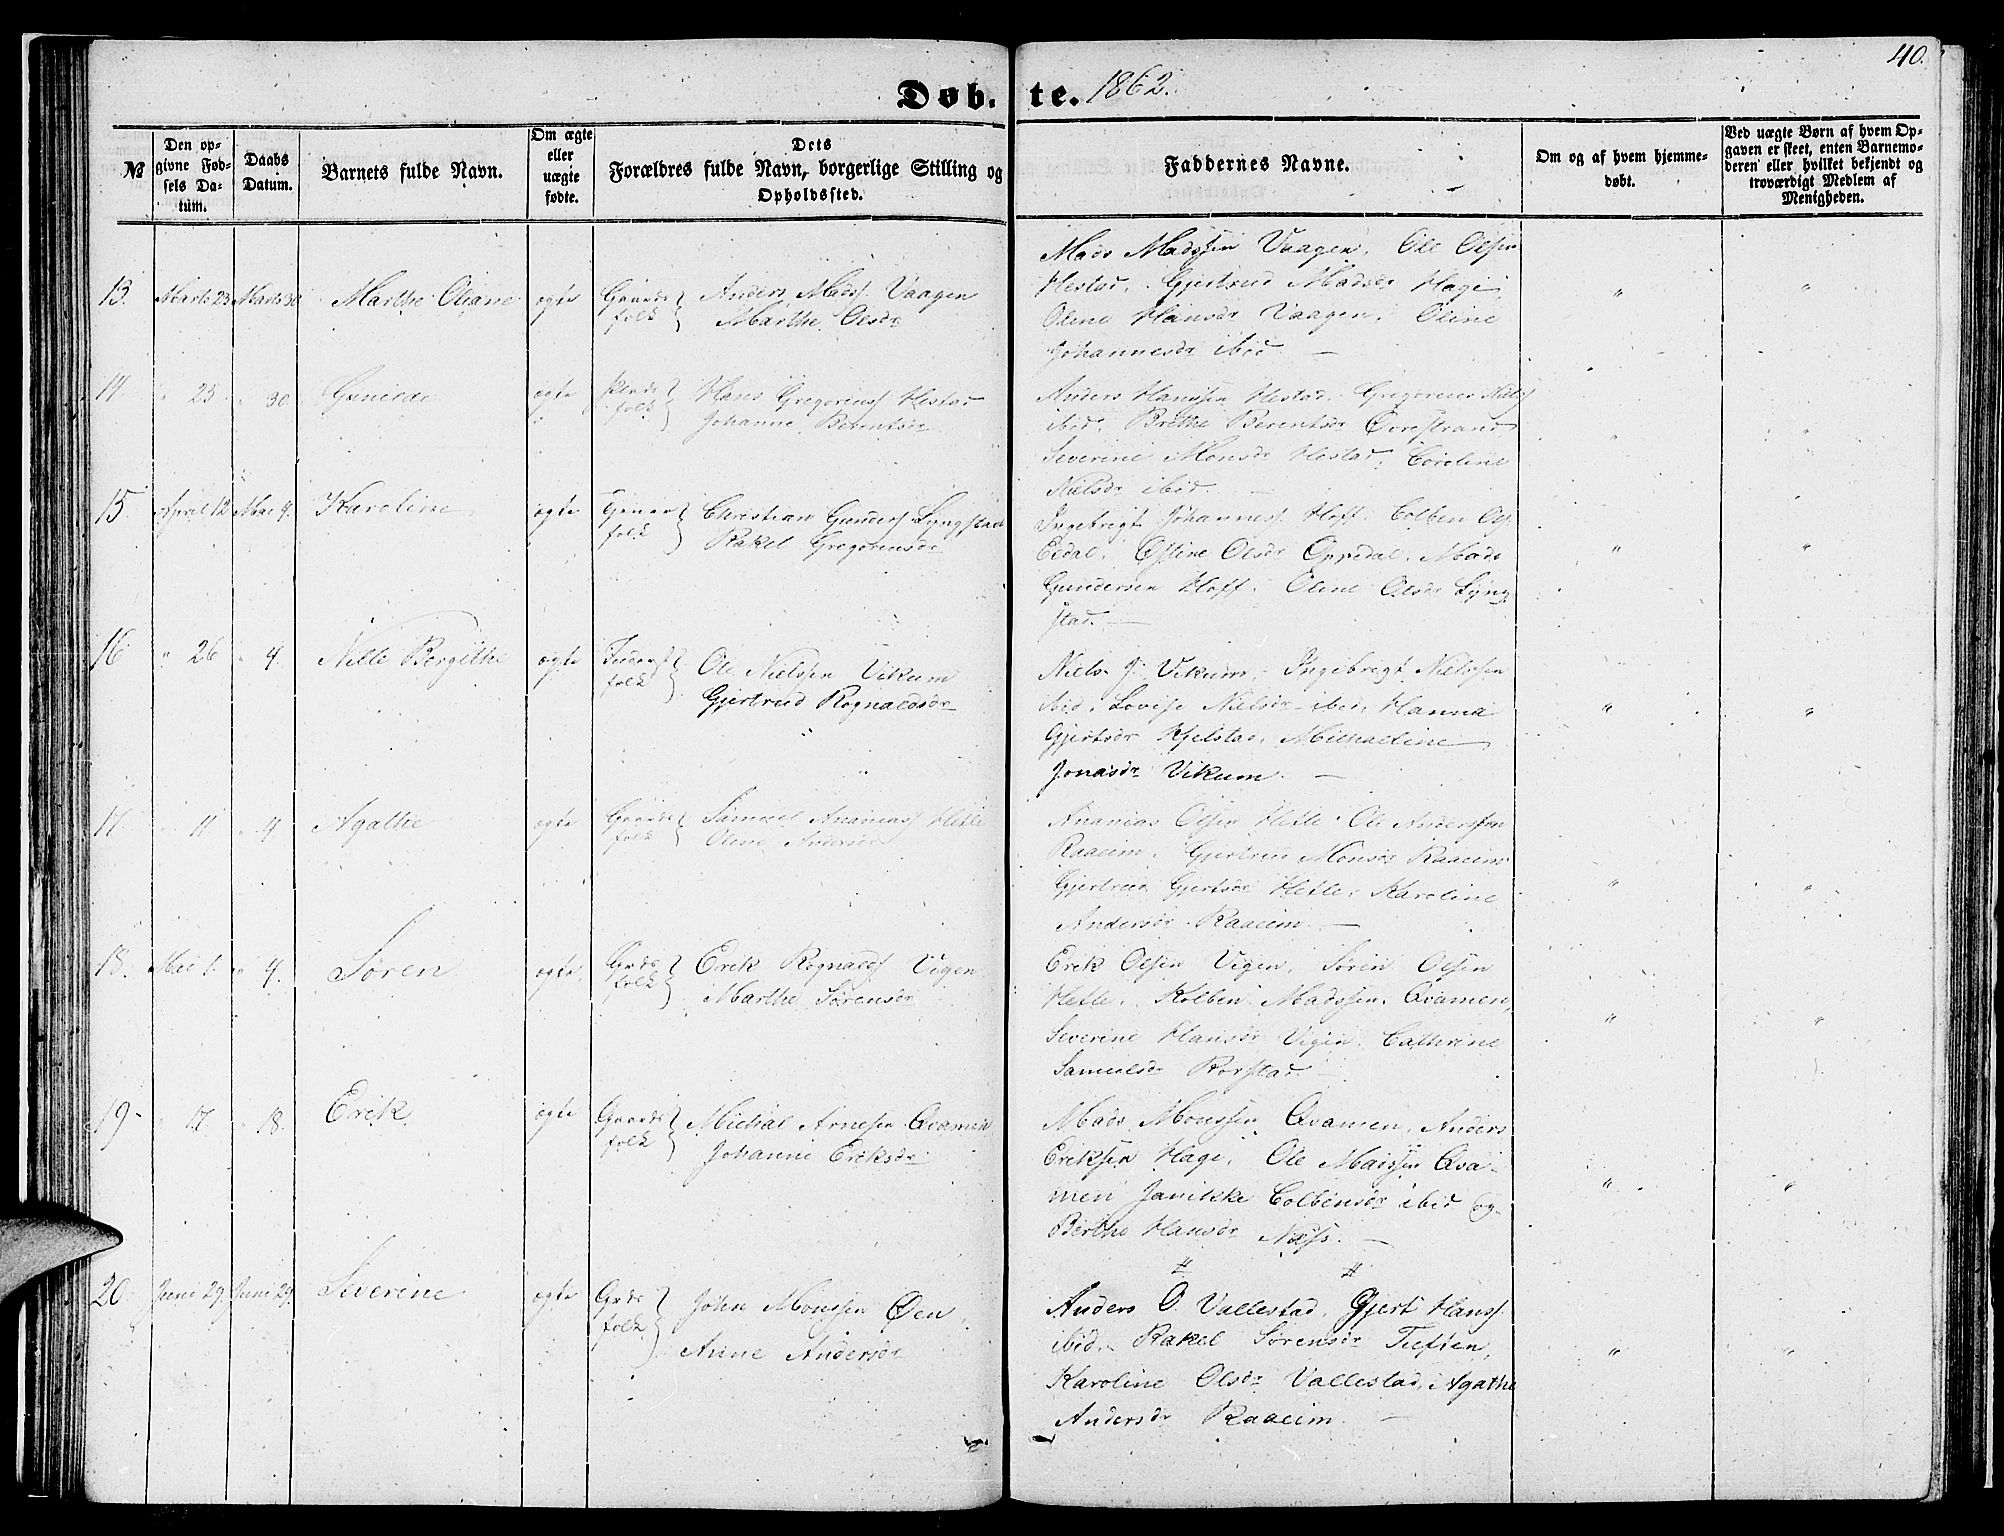 40.
Døb. te. 1862.
№ | Den opgivne Fødsels Datum. | Daabs Datum. | Barnets fulde Navn. | Om ægte eller uægte fødte. | Dets Forældres fulde Navn, borgerlige Stilling og Opholdssted. | Faddernes Navne. | Om og af hvem hjemmedøbt. | Ved uægte Børn af hvem Opgaven er skeet, enten Barnemoderen eller hvilket bekjendt og troværdigt Medlem af Menigheden.
13. Marts 23 Marts 30 Marthe Oliane ægte Gaards folk Anders Madss. Vaagen
Marthe Olsdr
Mads Madssen Vaagen, Ole Olsen
Hestad, Gjertrud Madsdr Hage,
Oline Hansdr Vaagen, Oline
Johannesdr ibid — " "
14. " 25 " 30. Gunilde ægte folk Hans Gregoriuss Hestad
Johanne Berentsdr
Anders Hanssen Hestad. Gregorius Nielss
ibid, Brethe Berentsdr Øvrestrand
Severine Monsdr Hestad, Coroline
Nielsdr ibid. — " "
15. April 12 Mai 4. Karoline ægte folk Christian Gunderss Lyngstad
Rakel Gregoriusdr
Ingebrigt Johanness. Hoff. Colben Ols.
Eldal. Østine Olsdr Oppedal. Mads
Gundersen Hoff. Oline Olsdr Lyng
stad. — " "
16 " 26 " 4. Nille Bergithe ægte folk Ole Nielssen Vikum
Gjertrud Rognaldsdr
Niels J. Vikum, Ingebrigt Nielssen
ibid, Lovise Nielsdr ibid, Hanna
Gjertsdr Kjelstad, Michaeline
Jonasdr Vikum. — " "
17. " 11 " 4 Agathe ægte Gaards folk Samuel Ananiass Hetle
Oline Andersdr
Ananias Olsen Hetle. Ole Anderssen
Raaeim, Gjertrud Monsdr Raaeim
Gjertrud Gjertsdr Hetle, Karoline
Andersdr Raaeim — " "
18. Mai 1. " 4. Søren ægte. Grds folk Erik Rognalds Vigen
Marthe Sørensdr
Erik Olsen Vigen, Søren Olsen
Hetle. Kolben Madssen Qvamen,
Severine Hansdr Vigen. Cathrine
Samuelsdr Rørstad. " "
19 " 17 " 18. Erik ægte Gaards folk Michal Arnesen Qvamen
Johanne Eriksdr
Mads Monssen Qvamen, Anders
Eriksen Hage, Ole Madssen Qva-
men Janikke Colbensdr ibid og
Berthe Hansdr Næss. — " "
20. Juni 29. Juni 29. Severine ægte Grds folk John Monssen Øen
Anne Andersdr
Anders O. Vallestad, Gjert Hanss.
ibid, Rakel Sørensdr Tuften,
Karoline Olsdr Vallestad, Agathe
Andersdr Raaeim. — " "